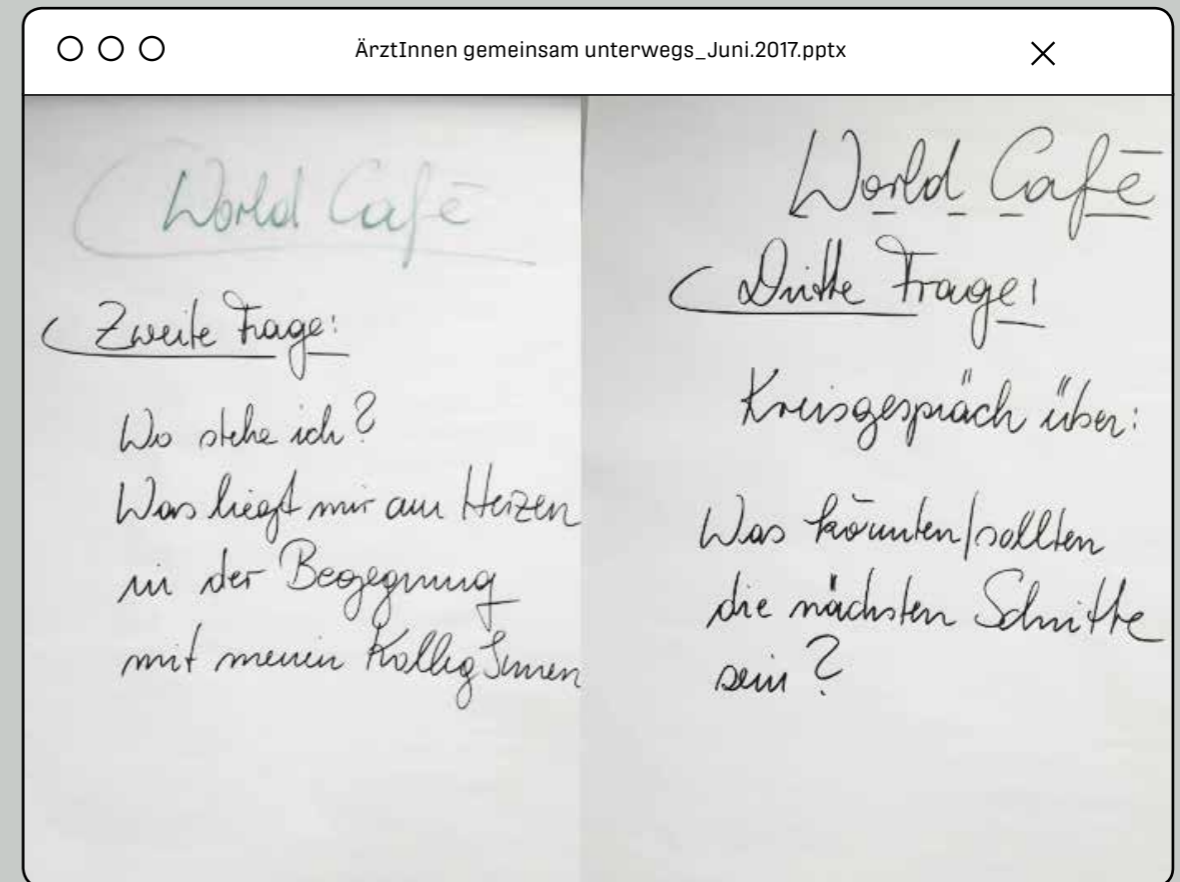 ÄrztInnen gemeinsam unterwegs_Juni.2017.pptx
World Café
Zweite Frage:
Wo stehe ich?
Was liegt mir am Herzen
in der Begegnung
mit meinen KollegInnen
World Café
Dritte Frage:
Kreisgespräch über:
Was könnten/sollten
die nächsten Schritte
sein?